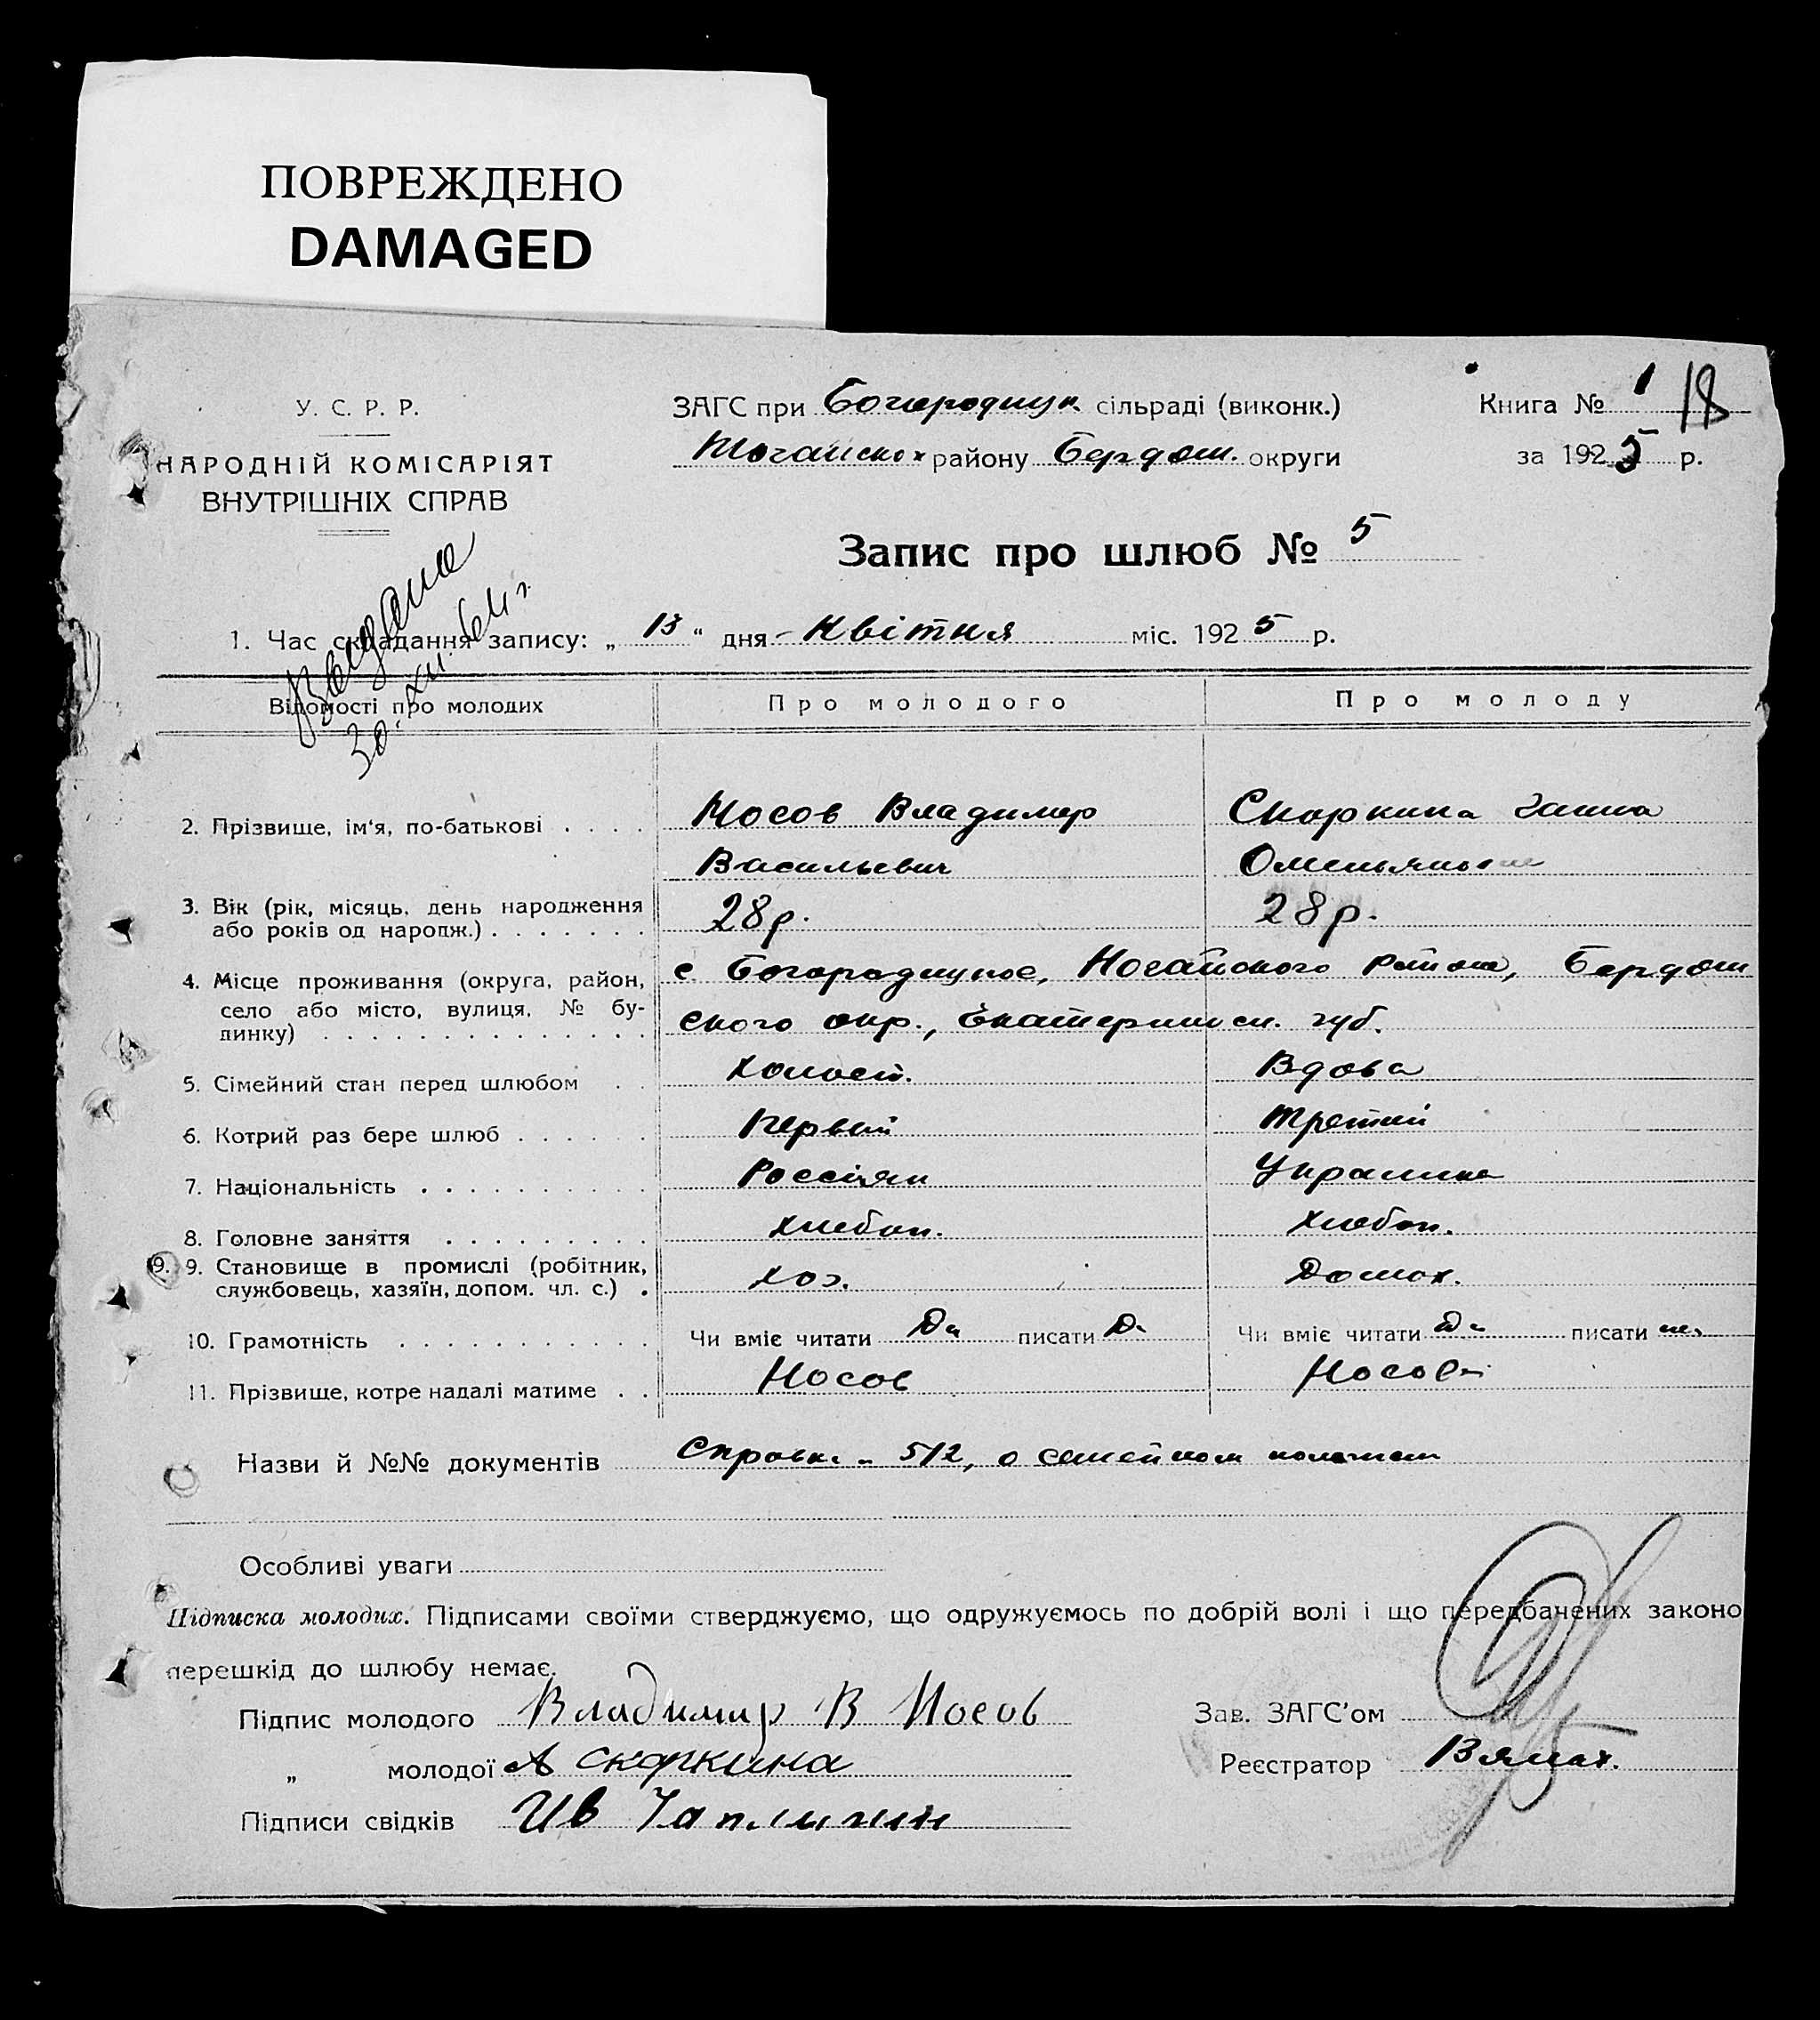 ПОВРЕЖДЕНО
DAMAGED
У. С. Р. Р.
НАРОДНІЙ КОМІСАРІЯТ
ВНУТРІШНІХ СПРАВ
ЗАГС при Богородицк. сільраді (виконк.)
району Бердян. округи
Книга № 1 18
за 1925 р.
Запис про шлюб № 5
Видано
30. XII. 64 г.
1. Час складання запису: „ 13 “ дня Квітня міс. 1925 р.
Відомості про молодих Про молодого Про молоду
2. Прізвище, ім'я, по-батькові . . . . Носов Владимер Скоркина Ганна
Васильевич
3. Вік (рік, місяць, день народження
або років од народж.) . . . . . . . 28 р. 28 р.
4. Місце проживання (округа, район,
село або місто, вулиця, № бу-
динку) . . . . . . . . . . . . . .
с Богородицкое, Ногайского района, Бердян
ского окр., Екатериносл. губ.
5. Сімейний стан перед шлюбом . . Холост. Вдова
6. Котрий раз бере шлюб . . . . . Первый Третий
7. Національність . . . . . . . . . Россіян Украинка
8. Головне заняття . . . . . . . . . хлебоп. хлебоп.
9. 9. Становище в промислі (робітник,
службовець, хазяїн, допом. чл. с.) . хоз. Домох.
10. Грамотність . . . . . . . . . . . Чи вміє читати Да писати Да Чи вміє читати Да писати
11. Прізвище, котре надалі матиме . . Носов Носова
Назви й №№ документів Справка 512, о семейном положен
Особливі уваги
Підписка молодих. Підписами своїми стверджуємо, що одружуємось по добрій волі і що передбачених законо
перешкід до шлюбу немає.
Підпис молодого Владимир В Носов
Зав. ЗАГС'ом
„ молодої А Скоркина
Реєстратор
Підписи свідків Ив Чаплыгин